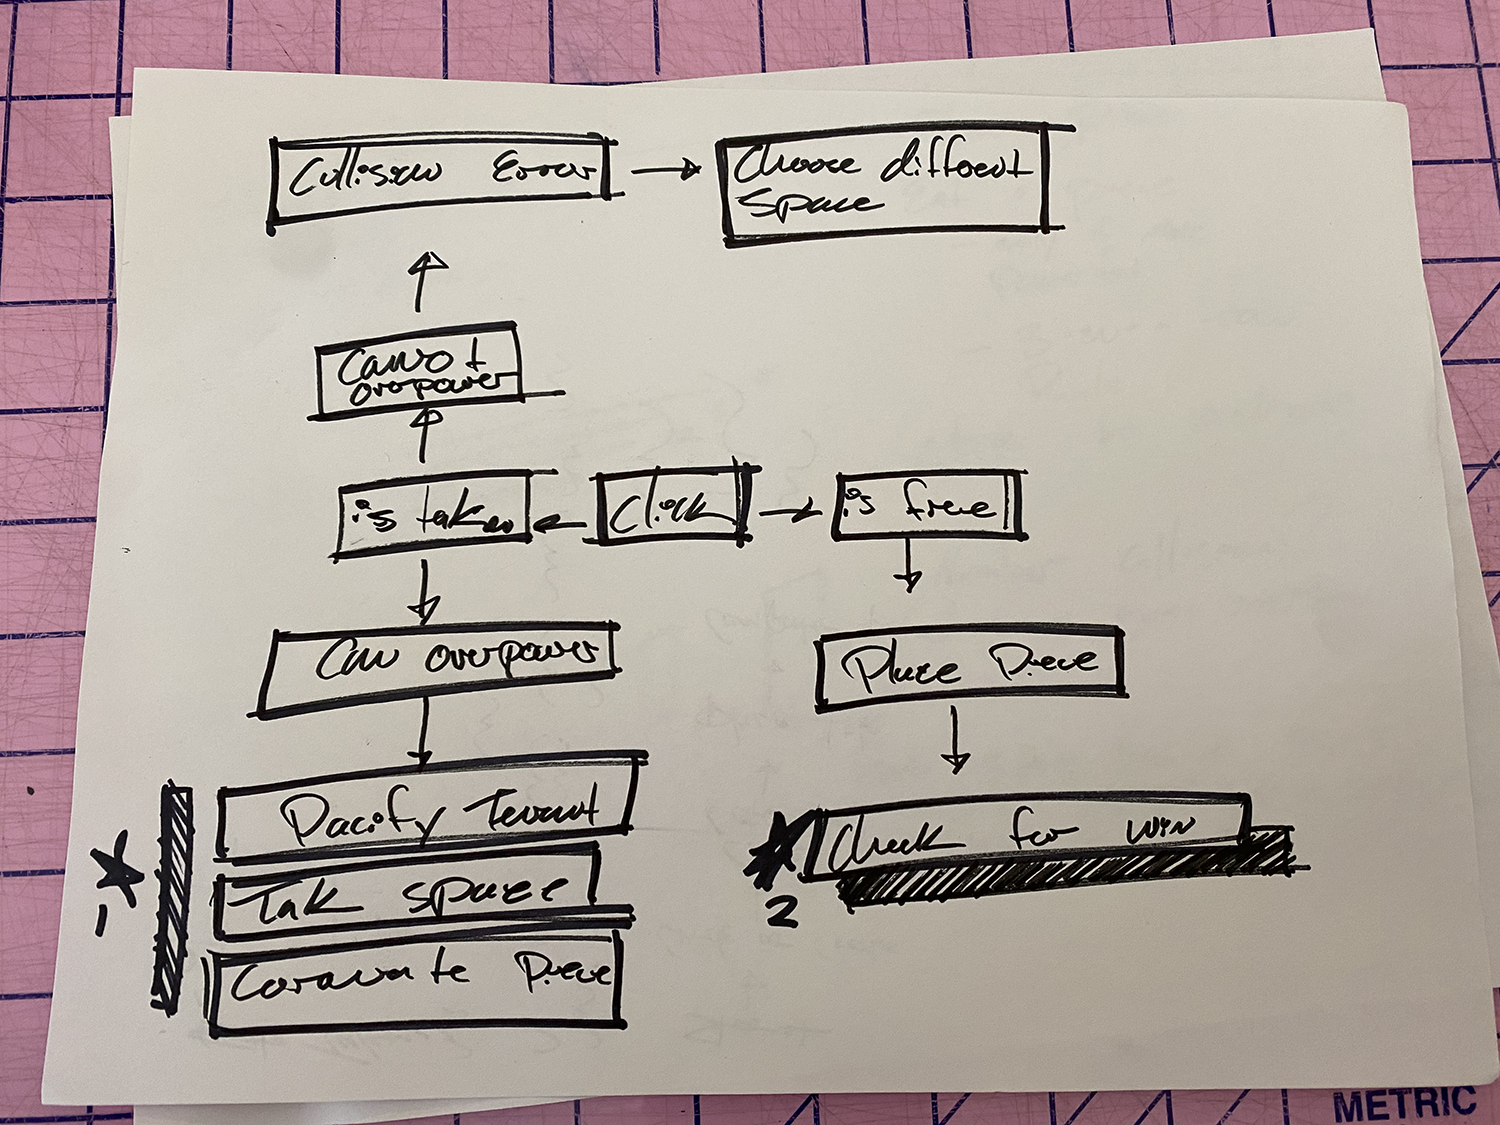 Collision Error
Choose different
Space
Cannot
overpower
is taken
Click
is free
Can overpower
Place Piece
Pacify Tenant
Check for win
2
Tak space
Coronate Piece
METRIC